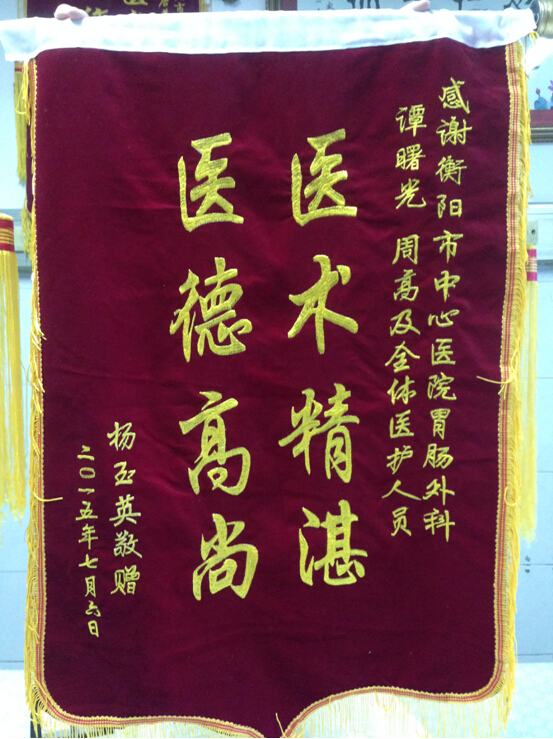 感谢衡阳市中心医院胃肠外科
谭曙光 周高及全体医护人员
医术精湛
医德高尚
杨玉英敬赠
二〇一五年七月六日